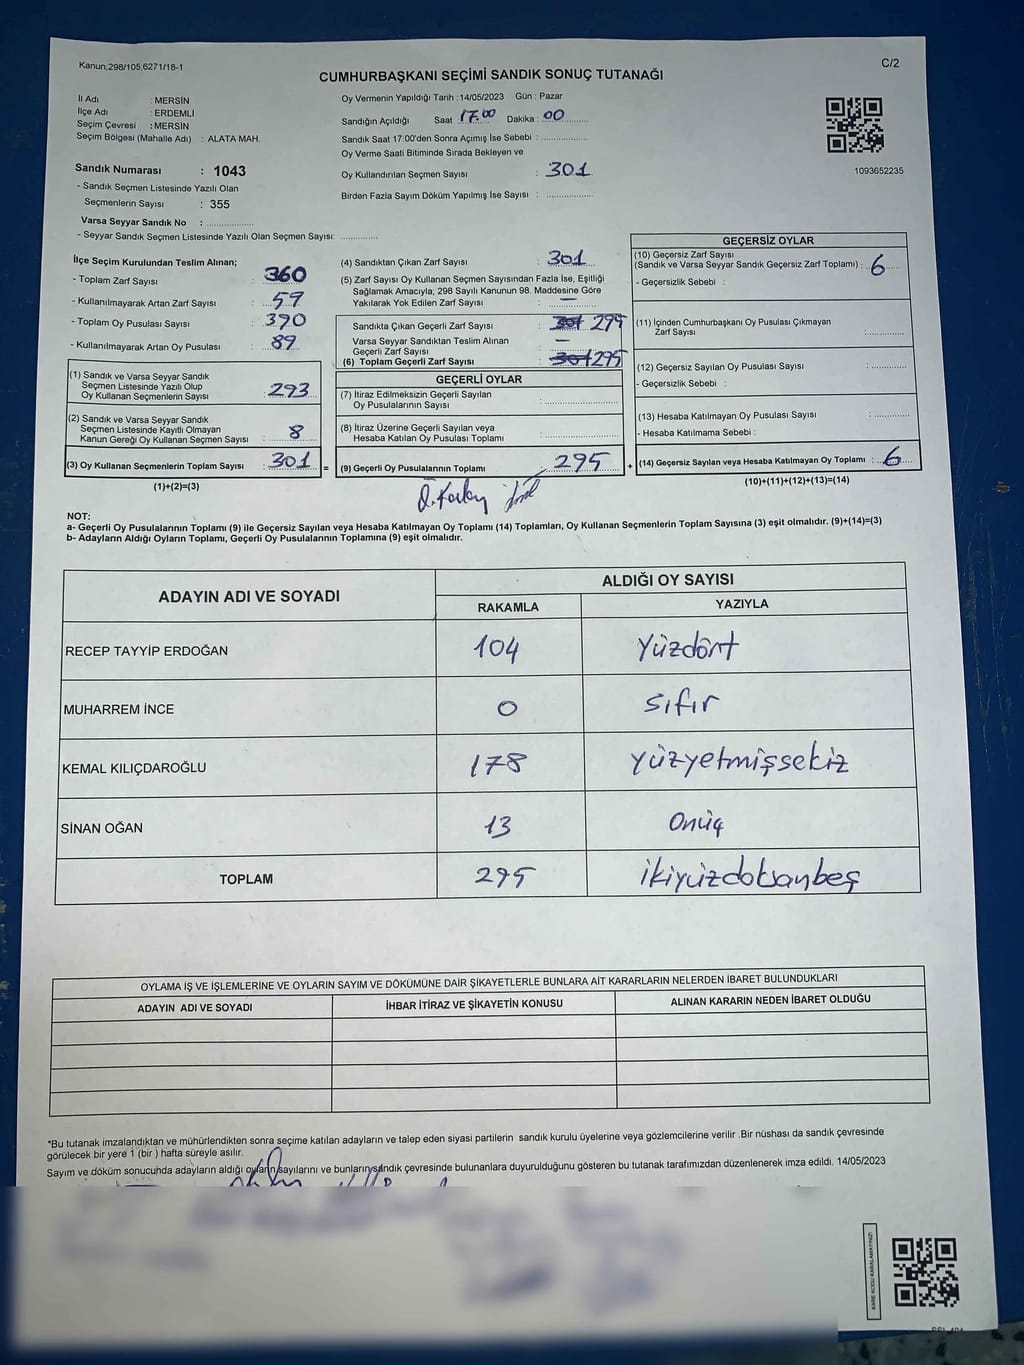 Kanun:298/105,6271/18-1
C/2
CUMHURBAŞKANI SEÇİMİ SANDIK SONUÇ TUTANAĞI
İl Adı : MERSİN
İlçe Adı : ERDEMLİ
Seçim Çevresi : MERSİN
Seçim Bölgesi (Mahalle Adı) : ALATA MAH.
Sandık Numarası : 1043
- Sandık Seçmen Listesinde Yazılı Olan
Seçmenlerin Sayısı : 355
Varsa Seyyar Sandık No :
- Seyyar Sandık Seçmen Listesinde Yazılı Olan Seçmen Sayısı:
Oy Vermenin Yapıldığı Tarih :14/05/2023 Gün : Pazar
Sandığın Açıldığı Saat 17.00 Dakika : 00
Sandık Saat 17:00'den Sonra Açımış İse Sebebi :
Oy Verme Saati Bitiminde Sırada Bekleyen ve
Oy Kullandırılan Seçmen Sayısı : 301
Birden Fazla Sayım Döküm Yapılmış İse Sayısı :
1093652235
İlçe Seçim Kurulundan Teslim Alınan;
- Toplam Zarf Sayısı : 360
- Kullanılmayarak Artan Zarf Sayısı : 59
- Toplam Oy Pusulası Sayısı : 390
- Kullanılmayarak Artan Oy Pusulası : 89
(1) Sandık ve Varsa Seyyar Sandık
Seçmen Listesinde Yazılı Olup
Oy Kullanan Seçmenlerin Sayısı : 293
(2) Sandık ve Varsa Seyyar Sandık
Seçmen Listesinde Kayıtlı Olmayan
Kanun Gereği Oy Kullanan Seçmen Sayısı : 8
(3) Oy Kullanan Seçmenlerin Toplam Sayısı : 301 =
(1)+(2)=(3)
(4) Sandıktan Çıkan Zarf Sayısı : 301
(5) Zarf Sayısı Oy Kullanan Seçmen Sayısından Fazla İse, Eşitliği
Sağlamak Amacıyla; 298 Sayılı Kanunun 98. Maddesine Göre
Yakılarak Yok Edilen Zarf Sayısı : —
Sandıkta Çıkan Geçerli Zarf Sayısı : 301 295
Varsa Seyyar Sandıktan Teslim Alınan
Geçerli Zarf Sayısı : —
(6) Toplam Geçerli Zarf Sayısı : 301 295
GEÇERLİ OYLAR
(7) İtiraz Edilmeksizin Geçerli Sayılan
Oy Pusulalarının Sayısı :
(8) İtiraz Üzerine Geçerli Sayılan veya
Hesaba Katılan Oy Pusulası Toplamı :
(9) Geçerli Oy Pusulalarının Toplamı : 295 +
GEÇERSİZ OYLAR
(10) Geçersiz Zarf Sayısı
(Sandık ve Varsa Seyyar Sandık Geçersiz Zarf Toplamı) : 6
- Geçersizlik Sebebi :
(11) İçinden Cumhurbaşkanı Oy Pusulası Çıkmayan
Zarf Sayısı :
(12) Geçersiz Sayılan Oy Pusulası Sayısı :
- Geçersizlik Sebebi :
(13) Hesaba Katılmayan Oy Pusulası Sayısı :
- Hesaba Katılmama Sebebi :
(14) Geçersiz Sayılan veya Hesaba Katılmayan Oy Toplamı : 6
(10)+(11)+(12)+(13)=(14)
NOT:
a- Geçerli Oy Pusulalarının Toplamı (9) ile Geçersiz Sayılan veya Hesaba Katılmayan Oy Toplamı (14) Toplamları, Oy Kullanan Seçmenlerin Toplam Sayısına (3) eşit olmalıdır. (9)+(14)=(3)
b- Adayların Aldığı Oyların Toplamı, Geçerli Oy Pusulalarının Toplamına (9) eşit olmalıdır.
ADAYIN ADI VE SOYADI
ALDIĞI OY SAYISI
RAKAMLA YAZIYLA
RECEP TAYYİP ERDOĞAN 104 Yüzdört
MUHARREM İNCE 0 sıfır
KEMAL KILIÇDAROĞLU 178 yüzyetmişsekiz
SİNAN OĞAN 13 Onüç
TOPLAM 295 ikiyüzdoksanbeş
OYLAMA İŞ VE İŞLEMLERİNE VE OYLARIN SAYIM VE DÖKÜMÜNE DAİR ŞİKAYETLERLE BUNLARA AİT KARARLARIN NELERDEN İBARET BULUNDUKLARI
ADAYIN ADI VE SOYADI İHBAR İTİRAZ VE ŞİKAYETİN KONUSU ALINAN KARARIN NEDEN İBARET OLDUĞU
*Bu tutanak imzalandıktan ve mühürlendikten sonra seçime katılan adayların ve talep eden siyasi partilerin sandık kurulu üyelerine veya gözlemcilerine verilir .Bir nüshası da sandık çevresinde
görülecek bir yere 1 (bir ) hafta süreyle asılır.
Sayım ve döküm sonucunda adayların aldığı oyların sayılarını ve bunların sandık çevresinde bulunanlara duyurulduğunu gösteren bu tutanak tarafımızdan düzenlenerek imza edildi. 14/05/2023
KARE KODU KARALAMAYINIZ!